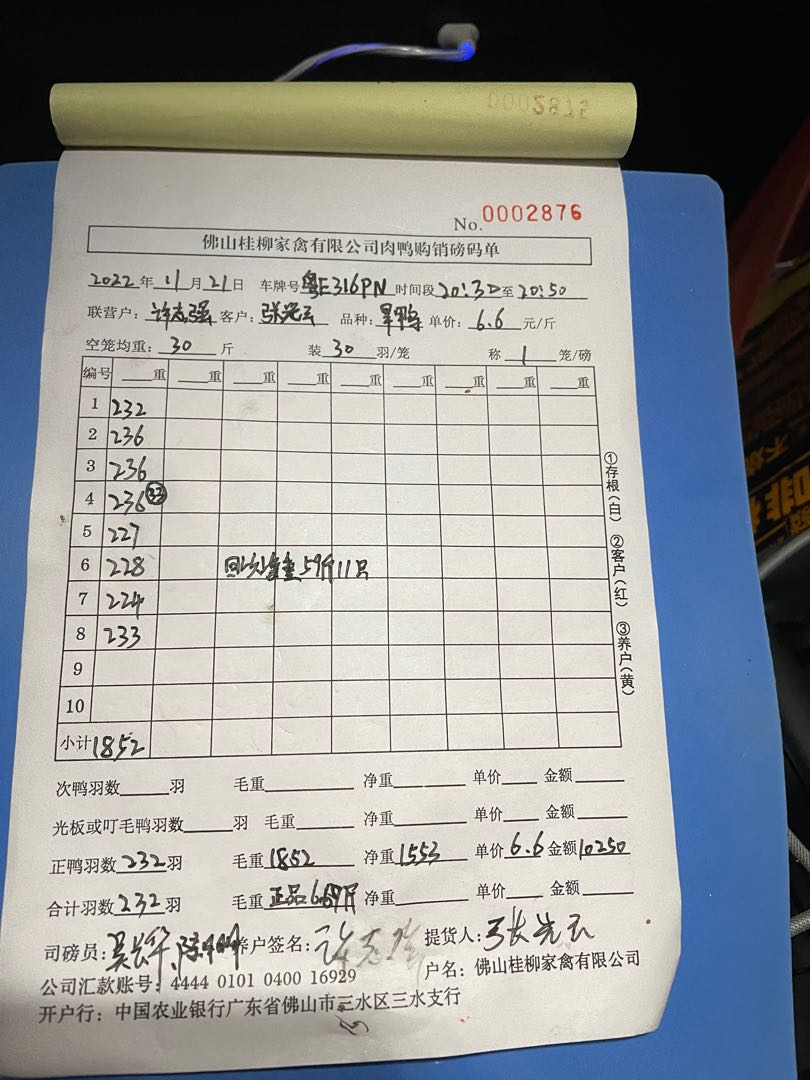 0002876
No. 0002876
佛山桂柳家禽有限公司肉鸭购销磅码单
2022年11月21日 车牌号粤E316PN 时间段20:30至20:50
联营户:许志强 客户:张光云 品种:旱鸭 单价:6.6元/斤
空笼均重:30斤 装30羽/笼 称1笼/磅
编号 重 重 重 重 重 重 重 重 重
1 232
2 236
3 236
4 236 33
5 227
6 228 59斤11只
7 224
8 233
9
10
小计 1852
①存根(白) ②客户(红) ③养户(黄)
次鸭羽数 羽 毛重 净重 单价 金额
光板或叮毛鸭羽数 羽 毛重 净重 单价 金额
正鸭羽数232羽 毛重1852 净重1553 单价6.6 金额10250
合计羽数232羽 毛重 正品6.69斤 净重 单价 金额
司磅员: 养户签名:许志强 提货人:张光云
公司汇款账号:4444 0101 0400 16929 户名:佛山桂柳家禽有限公司
开户行:中国农业银行广东省佛山市三水区三水支行